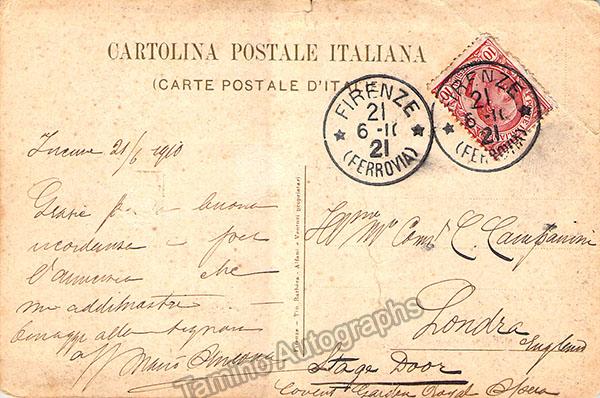 CARTOLINA POSTALE ITALIANA
(CARTE POSTALE D'ITALIE)
FIRENZE
21
6-10
21
(FERROVIA)
FIRENZE
21
6-10
21
(FERROVIA)
21/6 1910
Grazie per la buona
ricordanza e per
l'amicizia che
mi addimostra
Omaggi alla Signora
aff Mario Ancona
C. Campanini
Londra
England
Stage Door
Covent Garden Royal Opera
Alfani e Venturi proprietari
Tamino Autographs